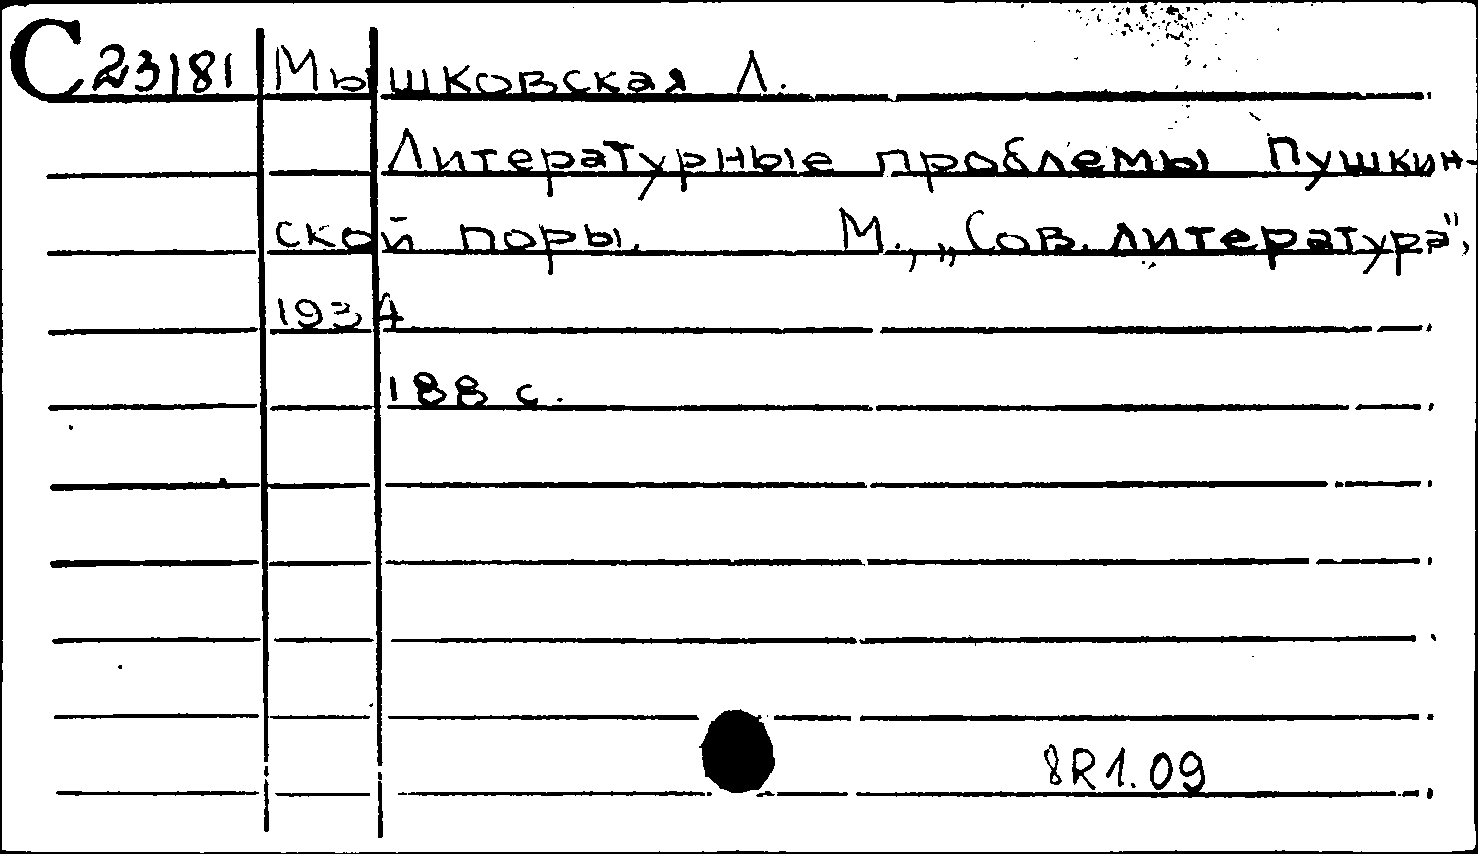 С23181 Мышковская Л.
Литературные проблемы Пушкин-
ской поры. М., „Сов. литература",
1934
188 с.
8R1.09